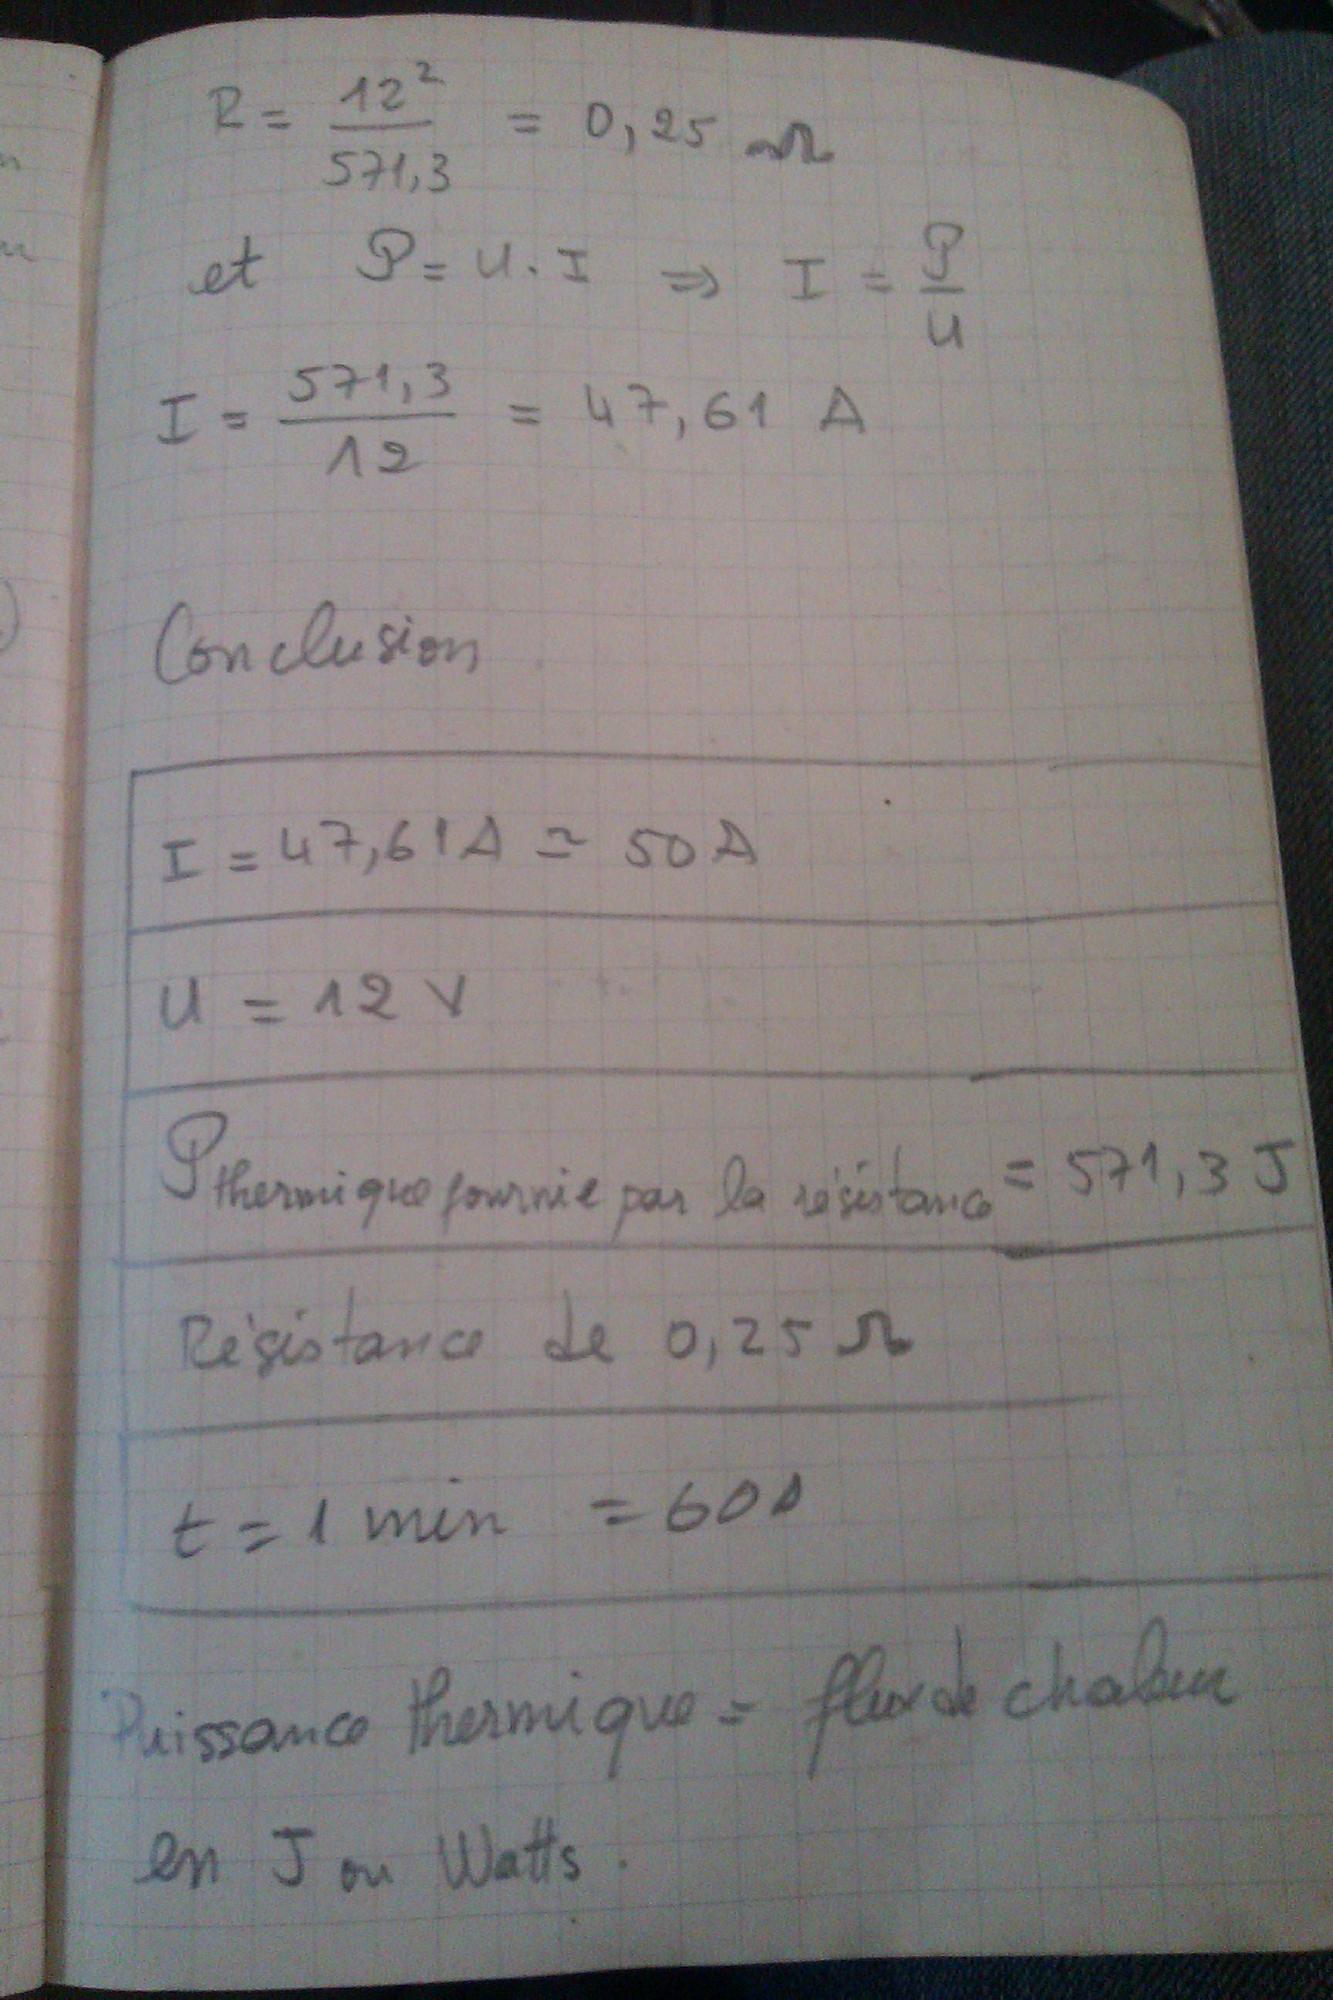 R = 12² / 571,3 = 0,25 Ω
et P = U . I ⇒ I = P / U
I = 571,3 / 12 = 47,61 A
Conclusion
I = 47,61 A ≃ 50 A
U = 12 V
P thermique fournie par la résistance = 571,3 J
Résistance de 0,25 Ω
t = 1 min = 60 s
Puissance thermique = flux de chaleur
en J ou Watts.